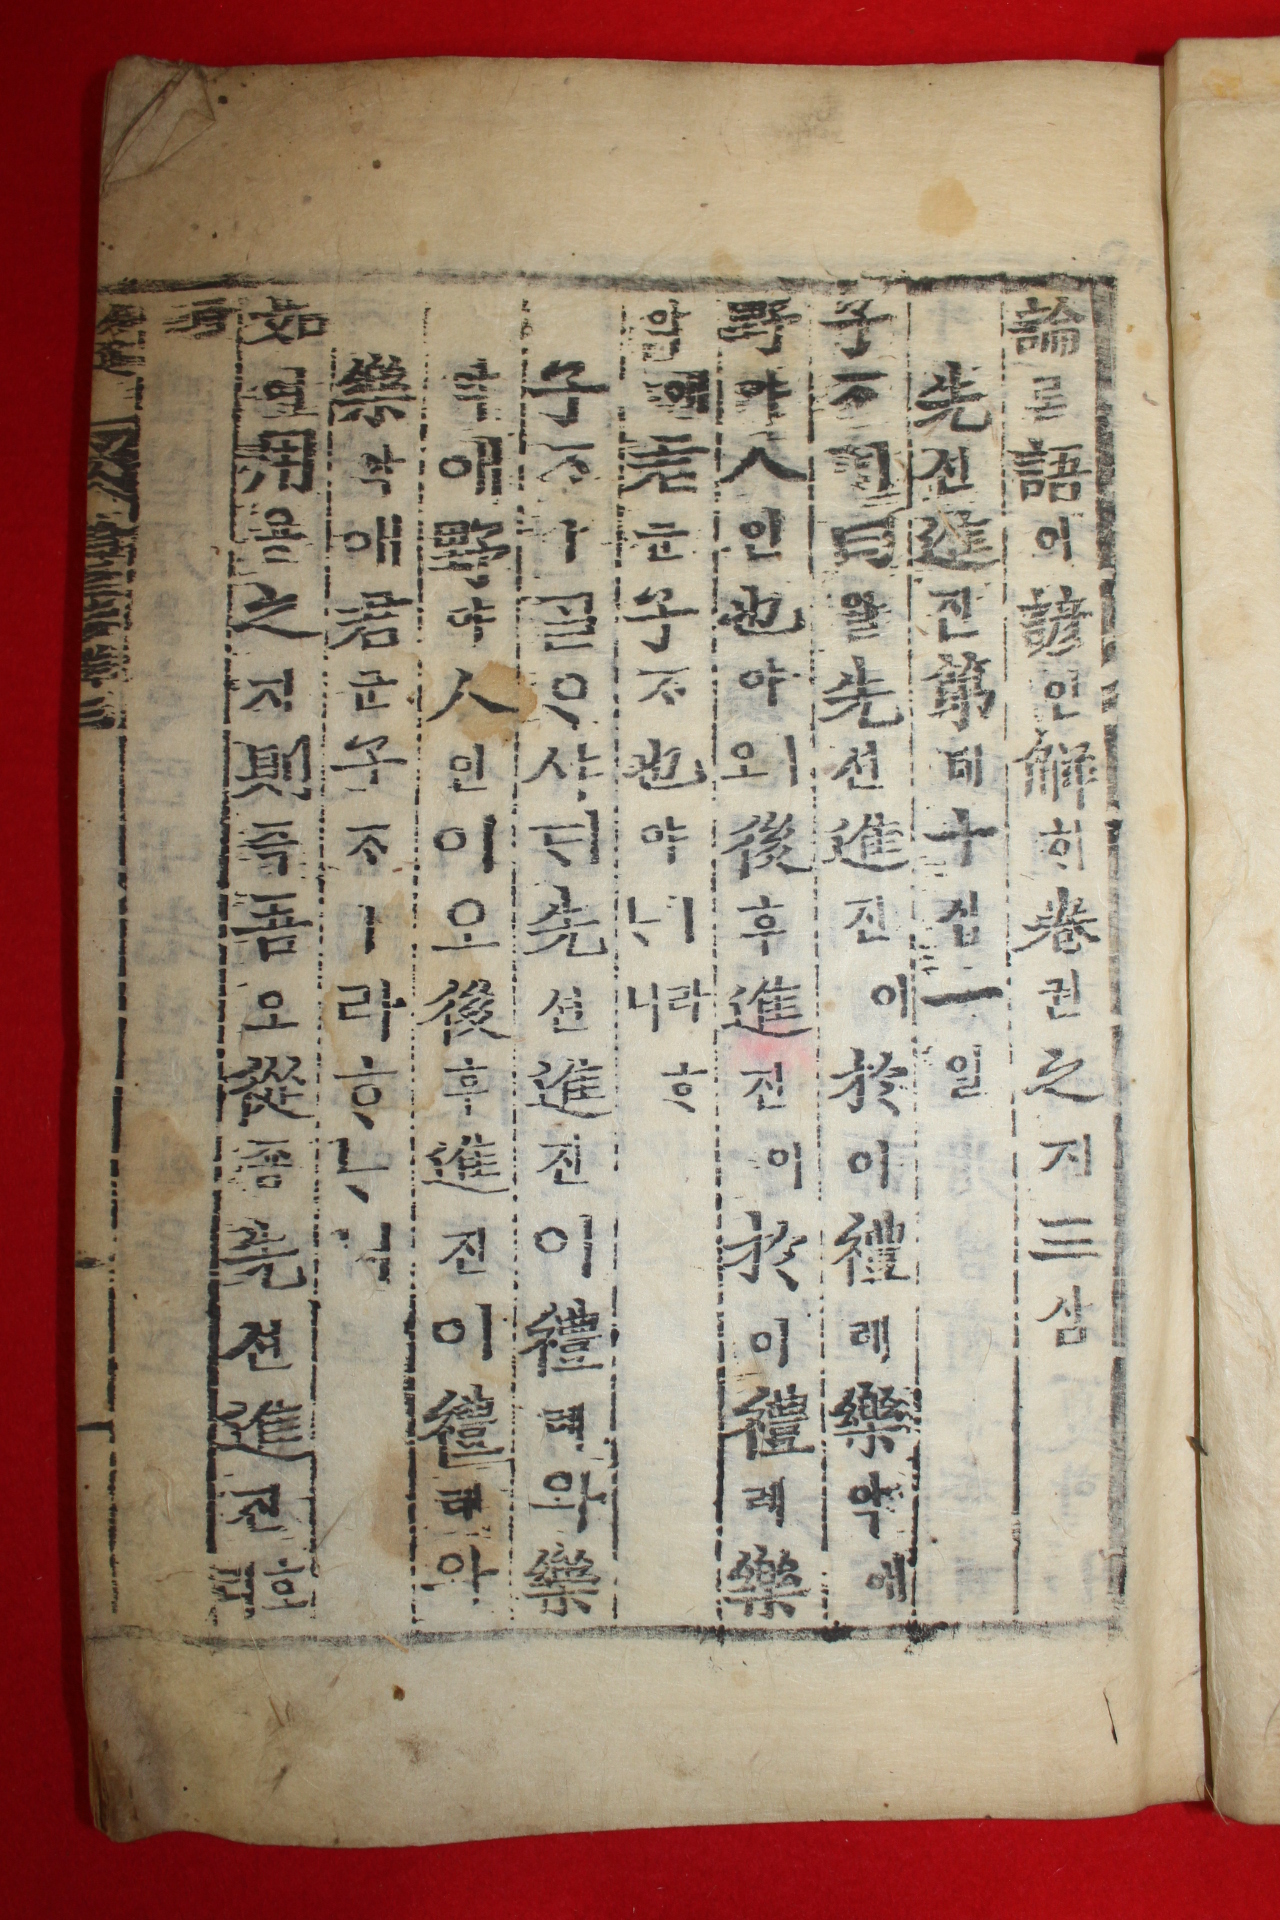 論론語어諺언解해卷권之지三삼
先션進진第뎨十십一일
子ᄌᆞㅣ曰왈先션進진이於어禮례樂악애
野야人인也야ㅣ오後후進진이於어禮례樂
악애君군子ᄌᆞ也야ㅣ라ᄒᆞᄂᆞ니
子ᄌᆞㅣᄀᆞᆯᄋᆞ샤ᄃᆡ先션進진이禮례와樂
악애野야人인이오後후進진이禮례와
樂악애君군子ᄌᆞㅣ라ᄒᆞᄂᆞ니
如여用용之지則즉吾오從죵先션進진호리